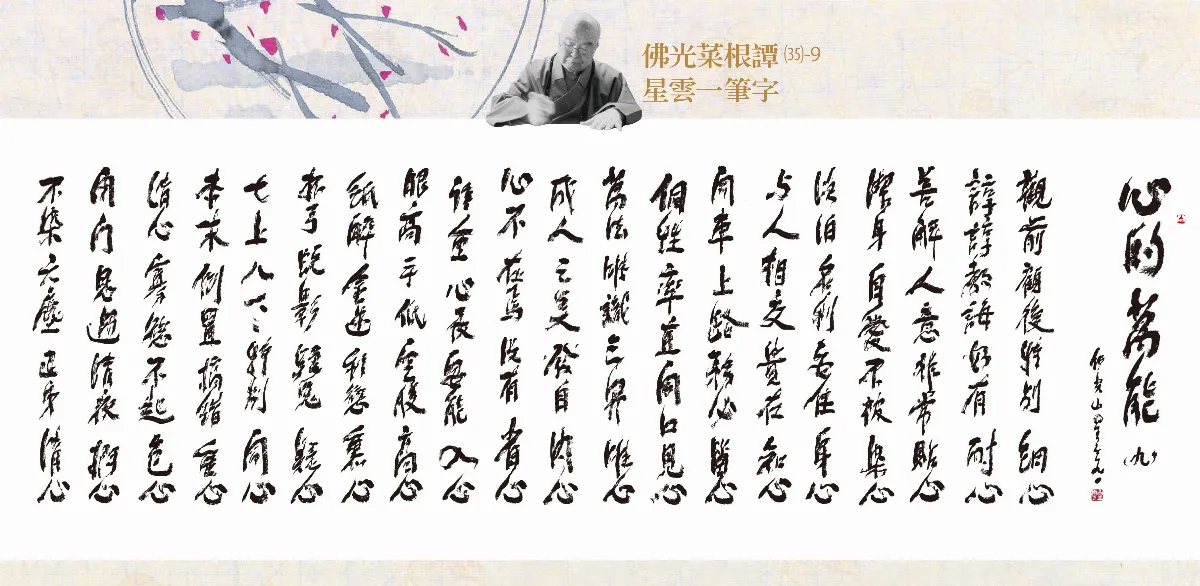 佛光菜根譚 (35)-9
星雲一筆字
心的萬能(九)
佛光山星雲
觀前顧後特別細心
諄諄教誨好有耐心
善解人意非常貼心
潔身自愛不被染心
淡泊名利安住身心
與人相交貴在知心
開車上路務必心
個性率直開口見心
萬法唯識三界唯心
成人之美發自心
心不在焉沒有心
心入心
眼高手低空腹高心
紙醉金迷利慾熏心
杯弓蛇影疑鬼疑心
七上八下特別心
本末倒置搞錯重心
清心寡慾不起色心
閉門思過清夜捫心
不染六塵清心